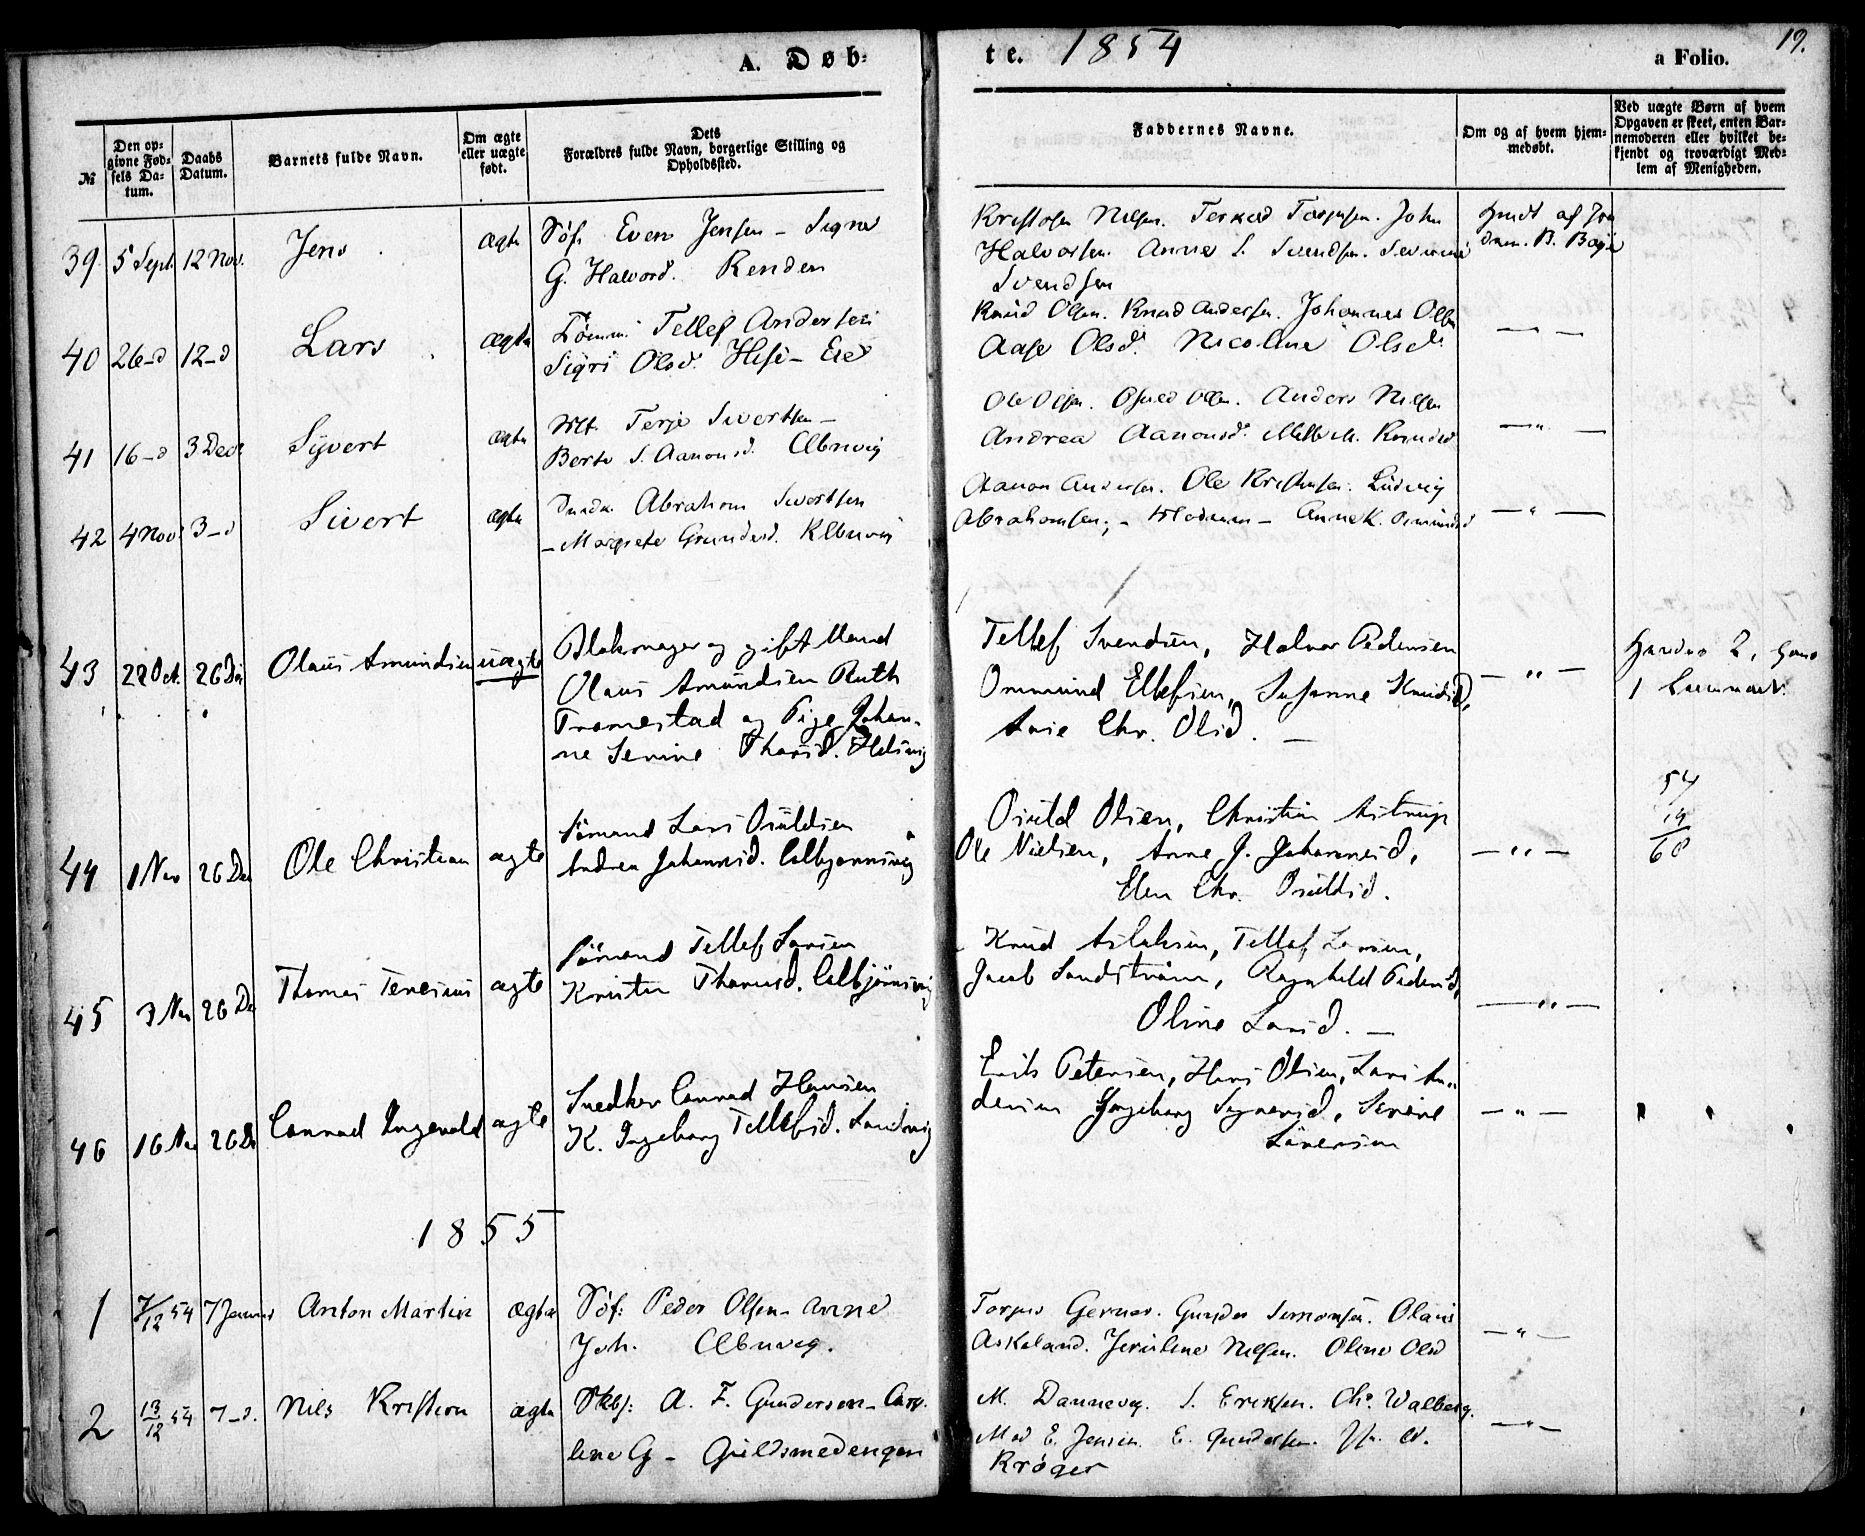 A. Døb-
te. 1854
a Folio. 19.
№
Den op-
givne Fød-
sels Da-
tum.
Daabs
Datum.
Barnets fulde Navn.
Om ægte
eller uægte
født.
Dets
Forældres fulde Navn, borgerlige Stilling og
Opholdssted.
Faddernes Navne.
Om og af hvem hjem-
medøbt.
Ved uægte Børn af hvem
Opgaven er skeet, enten Bar-
nemoderen eller hvilket be-
kjendt og troværdigt Med-
lem af Menigheden.
39. 5 Sept. 12 Nov. Jens ægte
Søf. Even Jensen - Signe
G. Halvord. Renden
Kristofer Nielsen. Terkild Torjusen. John
Halvorsen. Anne S. Svendsen. Severine
Svendsen
hmdt af Jor
dem. B. Boye
40 26-d 12-d Lars ægte
Tømm. Tellef Andersen
Sigri Olsd. Hise- Eie
Knud Olsen. Knud Andersen. Johannes Olsen
Aase Olsd. Nicoline Olsd.
— —
41 16-d 3 Dec. Syvert ægte
Mt. Terje Sivertsen -
Berte S. Aanonsd. Clbnvig
Ole Olsen. Osuld Olsen. Anders Nielsen
Andrea Aanonsd. M. Knudsd
— " —
42 4 Nov 3-d Sivert ægte
Abraham Sivertsen
- Margrete Gundersd. Klbnvig
Aanon Andersen. Ole Kristensen. Ludvig
Abrahamsen; - Madmm - Anne K. Omundsd
— " —
43 22 Oct. 26 De Olaus Amundsen uægte
Blokmager og gift Mand
Olaus Amundsen Ruth
Tromestad og Pige Johan-
ne Serine Thorsd. Helsvig
Tellef Svendsen, Halvor Pedersen
Ommund Ellefsen, Susanne Knudsd,
Anie Chr. Olsd. —
— " —
Hendes 2, hans
1 Leiermaal.
44 1 Nov 26 De Ole Christian ægte
Sömand Lars Osuldsen
Andrea Johannesd. Colbjørnsvig
Osuld Olsen, Christian Astrup
Ole Nielsen, Anne J. Johannesd,
Elen Chr. Osuldsd.
— " —
54
14
68
45 3 Nov 26 De Thomas Teresius ægte
Sömand Tellef Larsen
Kristine Thomasd. Colbjörnsvig
Knud Aslaksen, Tellef Larsen,
Jacob Sandström, Ragnhild Pedersd,
Oline Larsd. —
— " —
46 16 Nov 26 De Conrad Ingevald ægte
Snedker Conrad Hansen
K. Ingeborg Tellefsd. Sandvig
Erik Petersen, Hans Olsen, Lars An-
dersen Ingeborg Sygnesd, Serine
Sörensen
— " —
1855
1 7/12 54 7 Januar Anton Martin ægte
Söf: Peder Olsen - Anne
Joh. Clbnvig.
Torjus Gernes. Gunder Simonsen. Olaus
Askeland. Jensine Nielsen. Oline Olsd
— " —
2 13/12 54 7-d. Nils Kristian ægte
Skbf: A. F. Gundersen - Caro-
line G - Guldsmedengen
M. Dannevig. S. Eriksen. Ch. Walberg.
Mad E. Jensen. E. Gundersen. Jfr. Cl.
Krøger
— " —